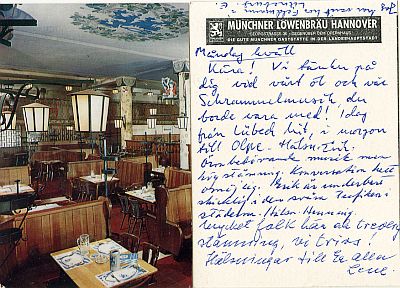 MÜNCHNER LÖWENBRÄU HANNOVER
GEORGSTRASSE 36 - GEGENÜBER DEM OPERNHAUS
DIE GUTE MÜNCHNER GASTSTÄTTE IN DER LANDESHAUPTSTADT
Måndag kväll
Kära! Vi tänker på
dig vid vårt öl och vår
Schrammelmusik, du
borde vara med! Idag
från Lübeck hit, i morgon
till Olpe.
musik men
hög stämning. Konversation helt
omöjlig. Erik är underbart
skicklig i den svåra trafiken i
städerna. Hälsn. Henning.
Mycket folk här och trevlig
stämning, vi trivs!
Hälsningar till Er alla
Lene.